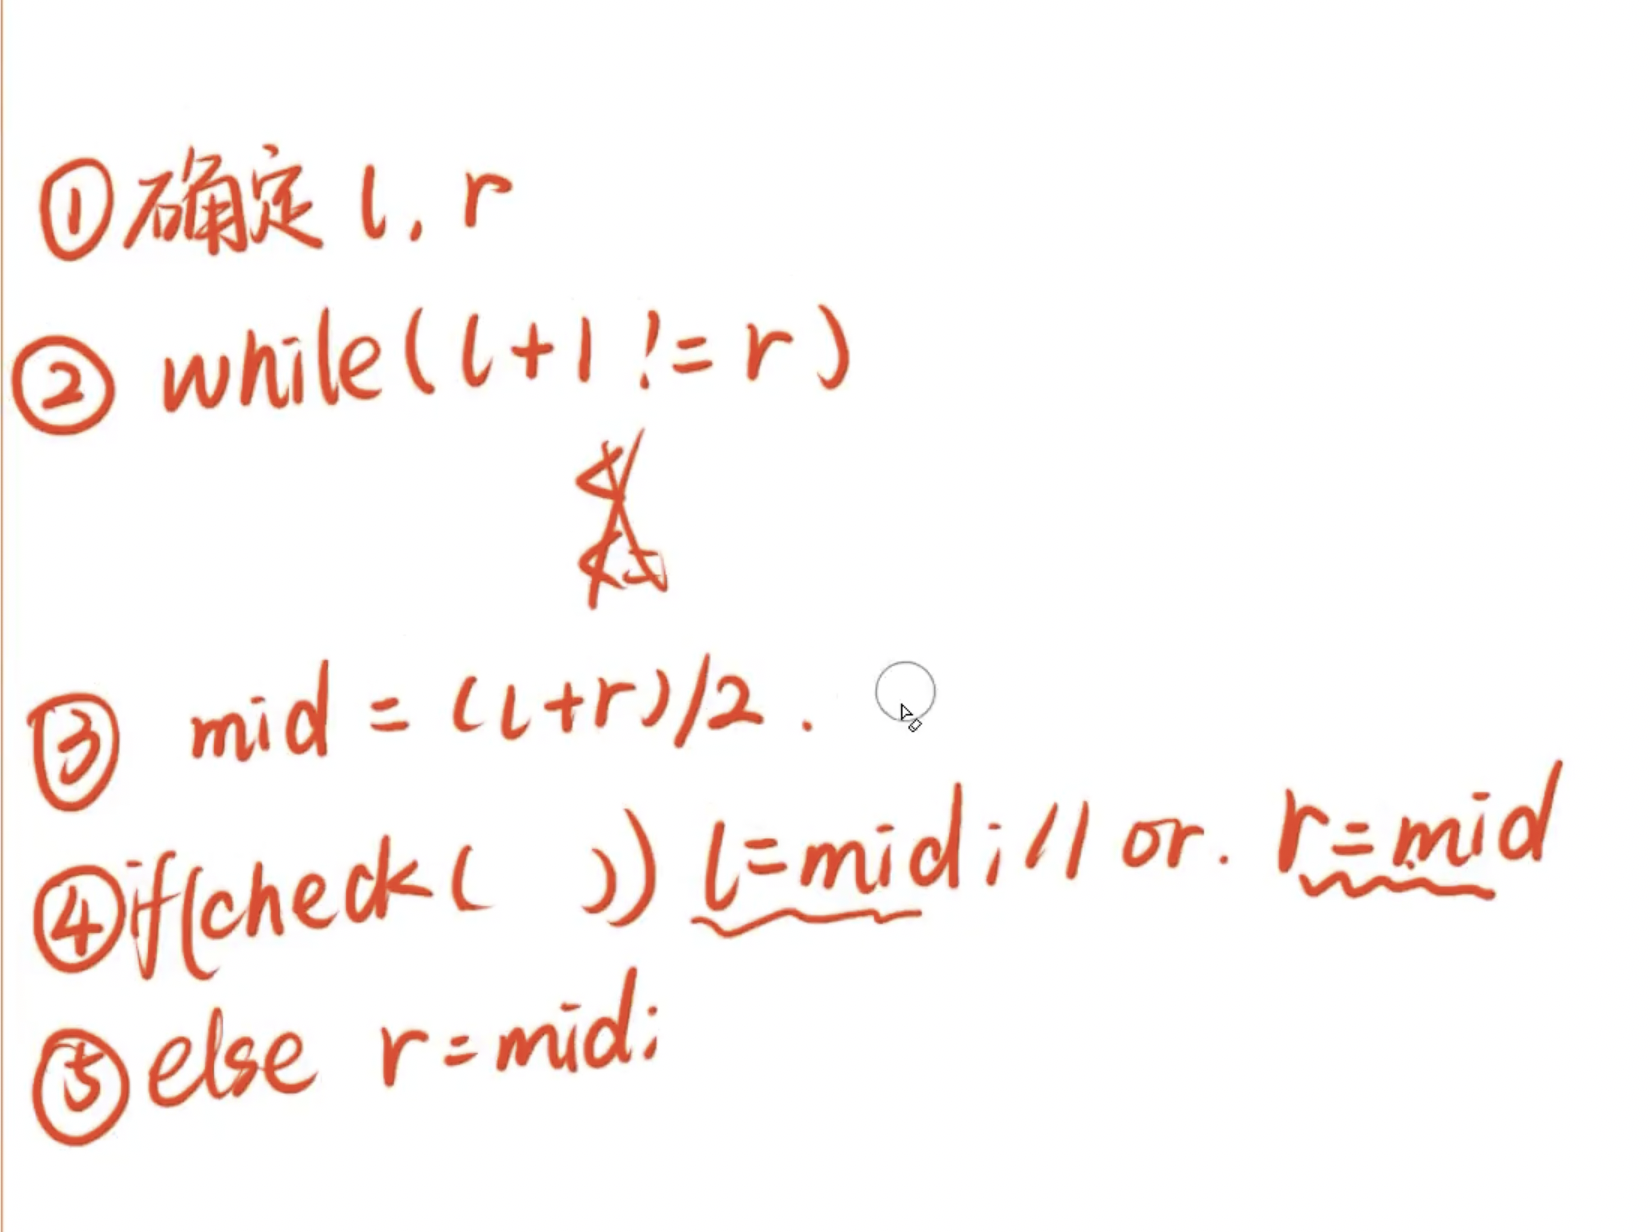 ①确定 l, r
② while(l+1 != r)
③ mid = (l+r)/2.
④if(check( )) l=mid; // or. r=mid
⑤else r=mid;